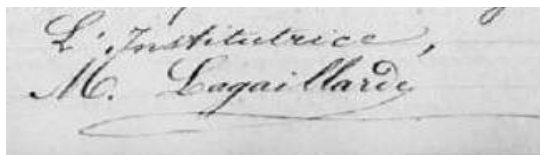 L'Institutrice,
M. Lagaillarde